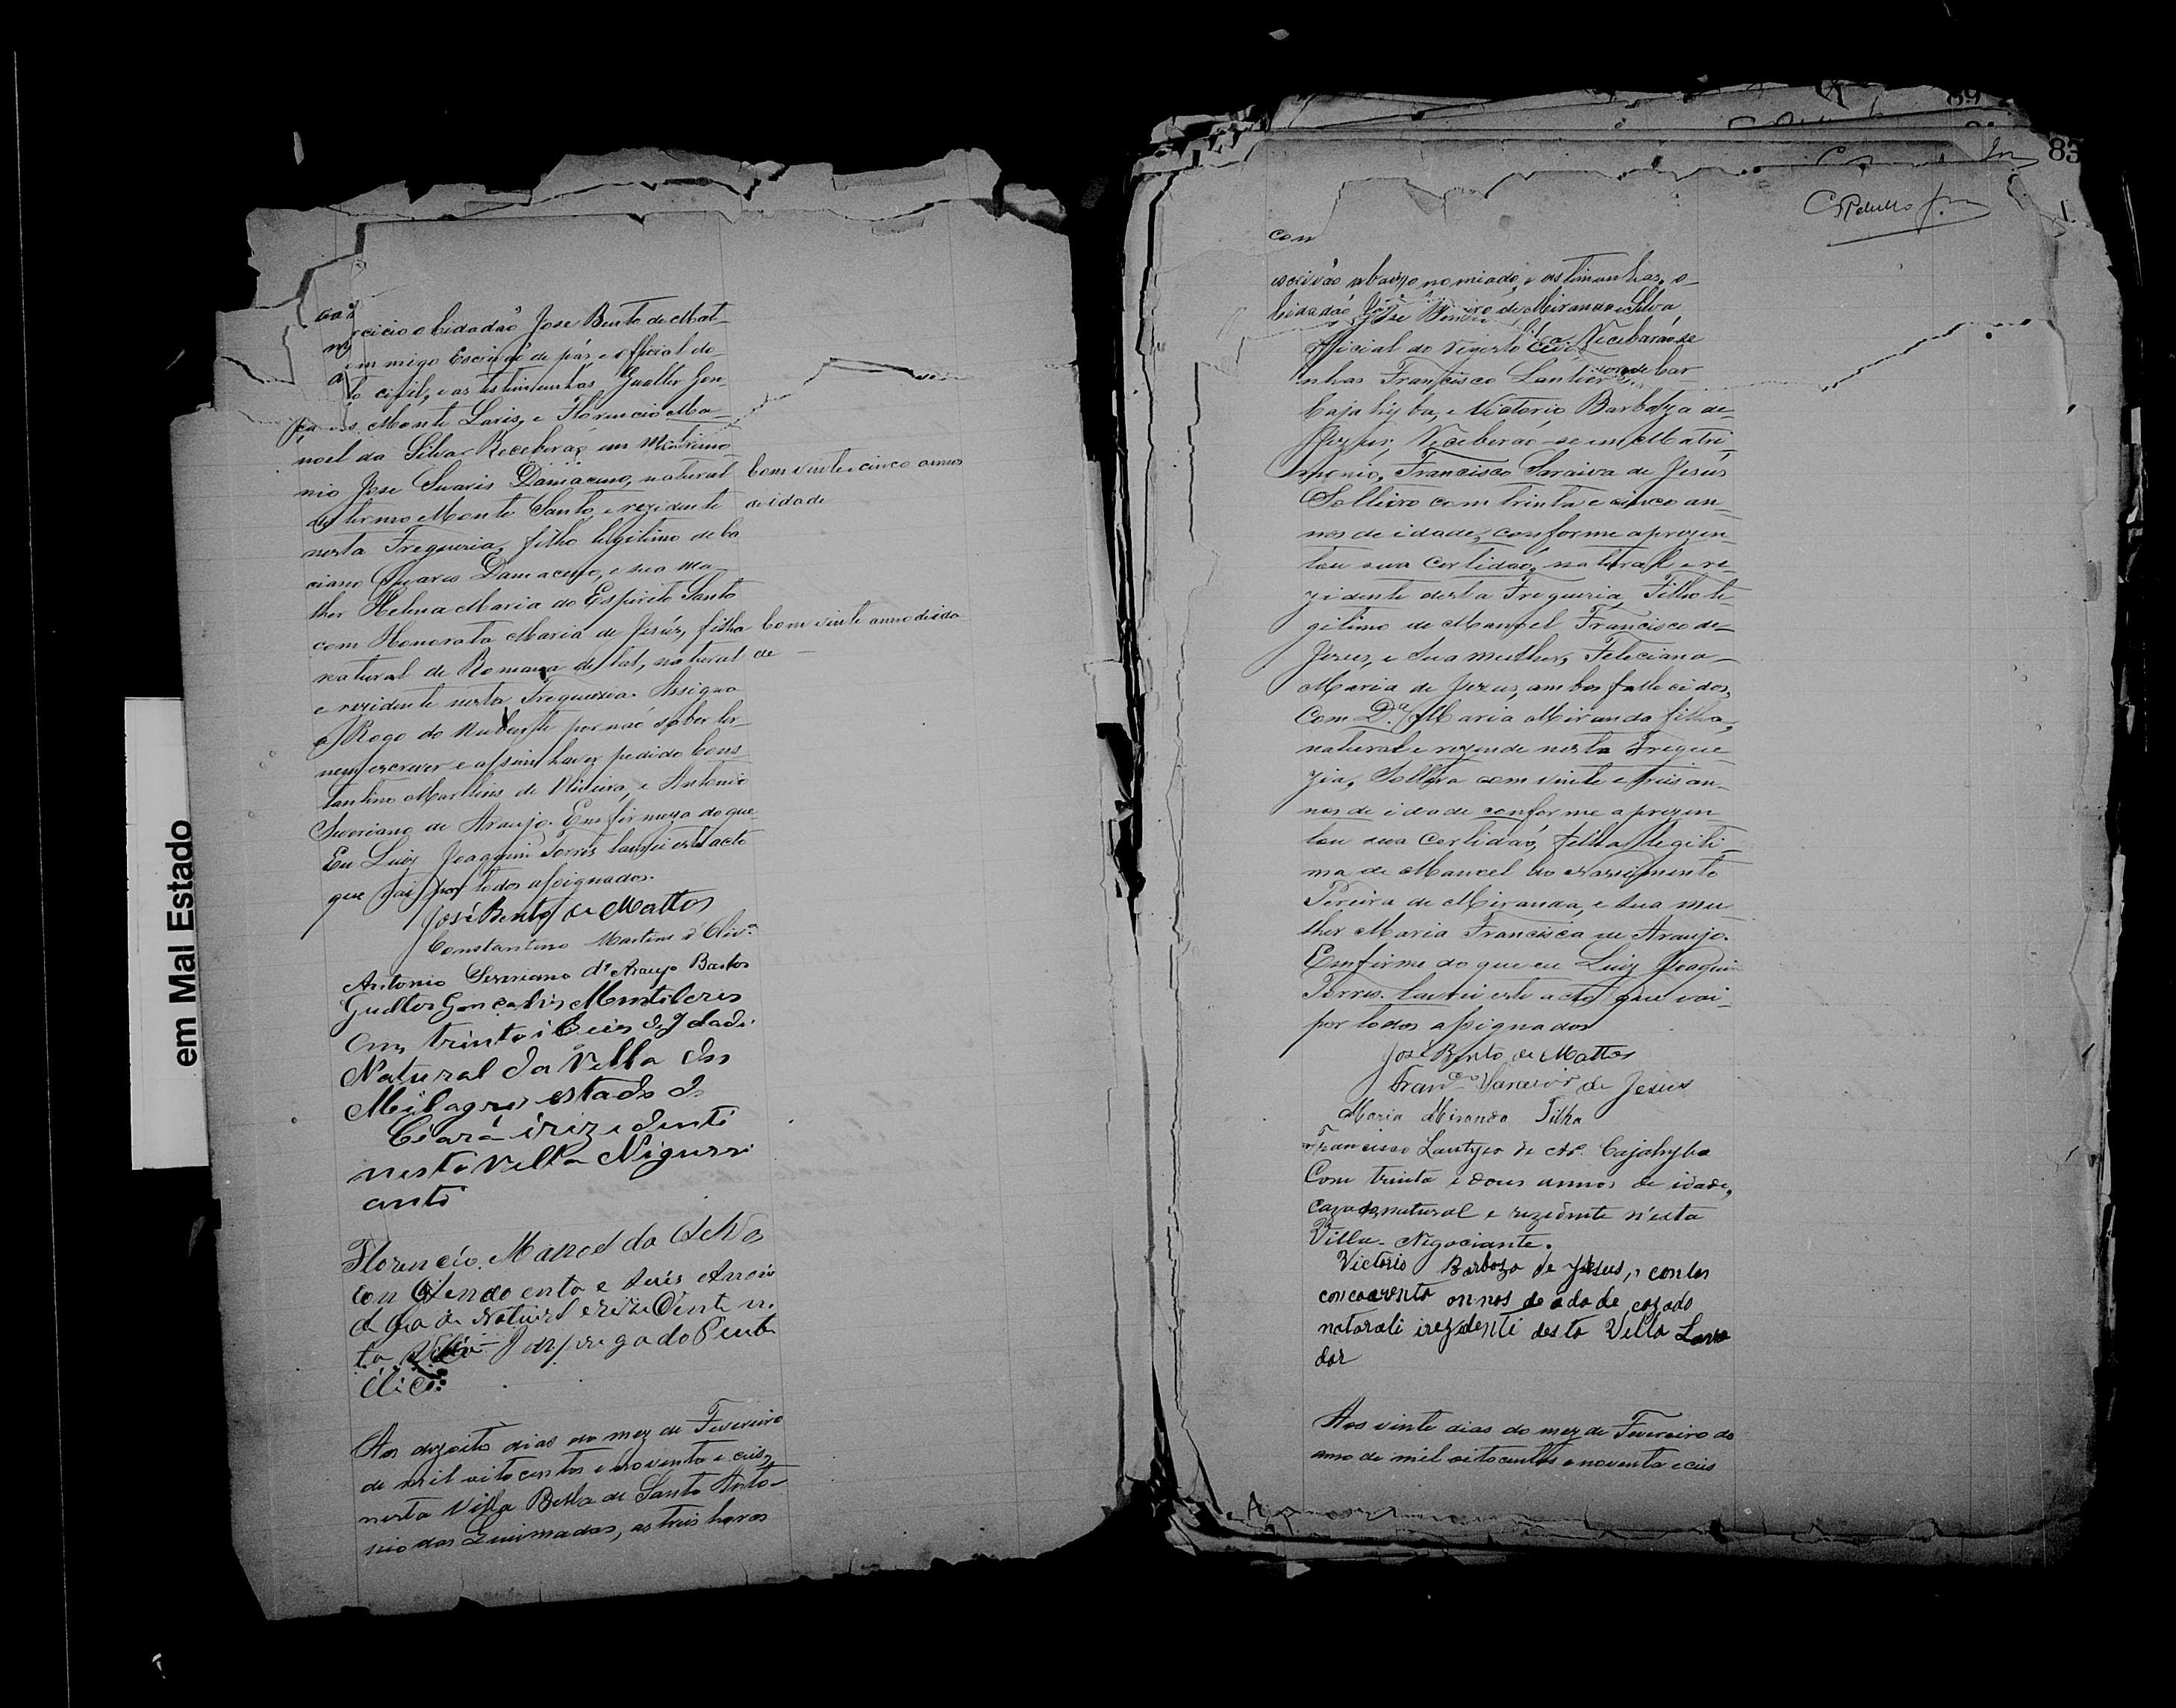 rcicio o Cidadaõ Jose Bento de Mat-
comigo Escrivaõ de pás, e official do
to civil, e as testimunhas Gualter Gon-
s Monte Laris, e Florencio Ma-
noel da Silva. Receberaõ em Matrimo-
nio Jose Suaris Damaceno, natural
do termo Monte Santo, e rezidente
nesta Fregueria, filho legitimo de Ca
ciano Suares Damaceno, e sua mu-
lher Helena Maria do Espirito Santo
com Honorata Maria de Jesús, filha
natural de Romana de tal, natural
e rezidente nesta Freguezia. Assigna
a Rogo do Nubente por naõ saber ler
nem escrever e assim haver pedido Cons
tantino Martins de Oliveira, e Antonio
Severiano de Araujo. Em firmeza do que
Eu Luiz Joaquim Torres lavrei este acto
que vai por todos assignados.
Com vinte e cinco annos
de idade
Com vinte anno de ida
de
José Bento de Mattos
Constantino Martins d'Olivª
Antonio Severiano dº Araujo Bastos
Gualter Gonçalvis Montiláris
Com trinta i Ceis di Idadi
Natural da Villa dos
Milagris estado do
Ceará i rizidenti
nesta Villa Nigussi
anti
Florencio Manoel da Silva
com Cincoenta e seis Annos
de Natural e rezidente n.
ta Villa Inpregado Pu
blico.
Aos dezoito dias do mez de Fevereiro
de mil oitocentos e noventa e ceis,
nesta Villa Bella de Santo Anto-
nio das Queimadas, as tres horas
83
con
escrivão abaixo nomiado, e as timunhas, o
Cidadaõ José Ribeiro de Miranda e Silva
Official do Registo Civil Receberaõ-se
nhas Francisco Lantier de Car
Cajahyba, e Victorio Barboza de
Jezus, Receberaõ-se em Matri
monio, Francisco Saraiva de Jesús
Solteiro com trinta e cinco an-
nos de idade, conforme aprezen-
tou sua Certidaõ, natural e re-
zidente desta Fregueria Filho le-
gitimo de Manoel Francisco de
Jezus, e sua mulher, Feleciana
Maria de Jezus, ambos fallecidos,
Com D.ª Maria Miranda filha,
natural e rezende nesta Fregue
zia, Solteira com vinte e tres an-
nos de idade conforme aprezen
tou sua Certidaõ, filha legiti-
ma de Manoel do Nascimento
Pereira de Miranda, e sua mu
lher Maria Francisca de Araujo.
Em firme do que eu Luiz Joaquim
Torres. lavrei este acto que vai
por todos assignados
José Bento de Mattos
Francº Saraiva de Jesus
Maria Miranda Filha
Francisco Lantyer de Cajahyba
Com trinta e dous annos de idade,
cazado, natural e rezidente n'esta
Villa- Negociante.
Victorio Barboza de Jesus, com
concoenta annos de idade cazado
naturali irezidenti desta Villa Lavra
dor
Aos vinte dias do mez de Fevereiro do
anno de mil oitocentos e noventa e ceis
em Mal Estado